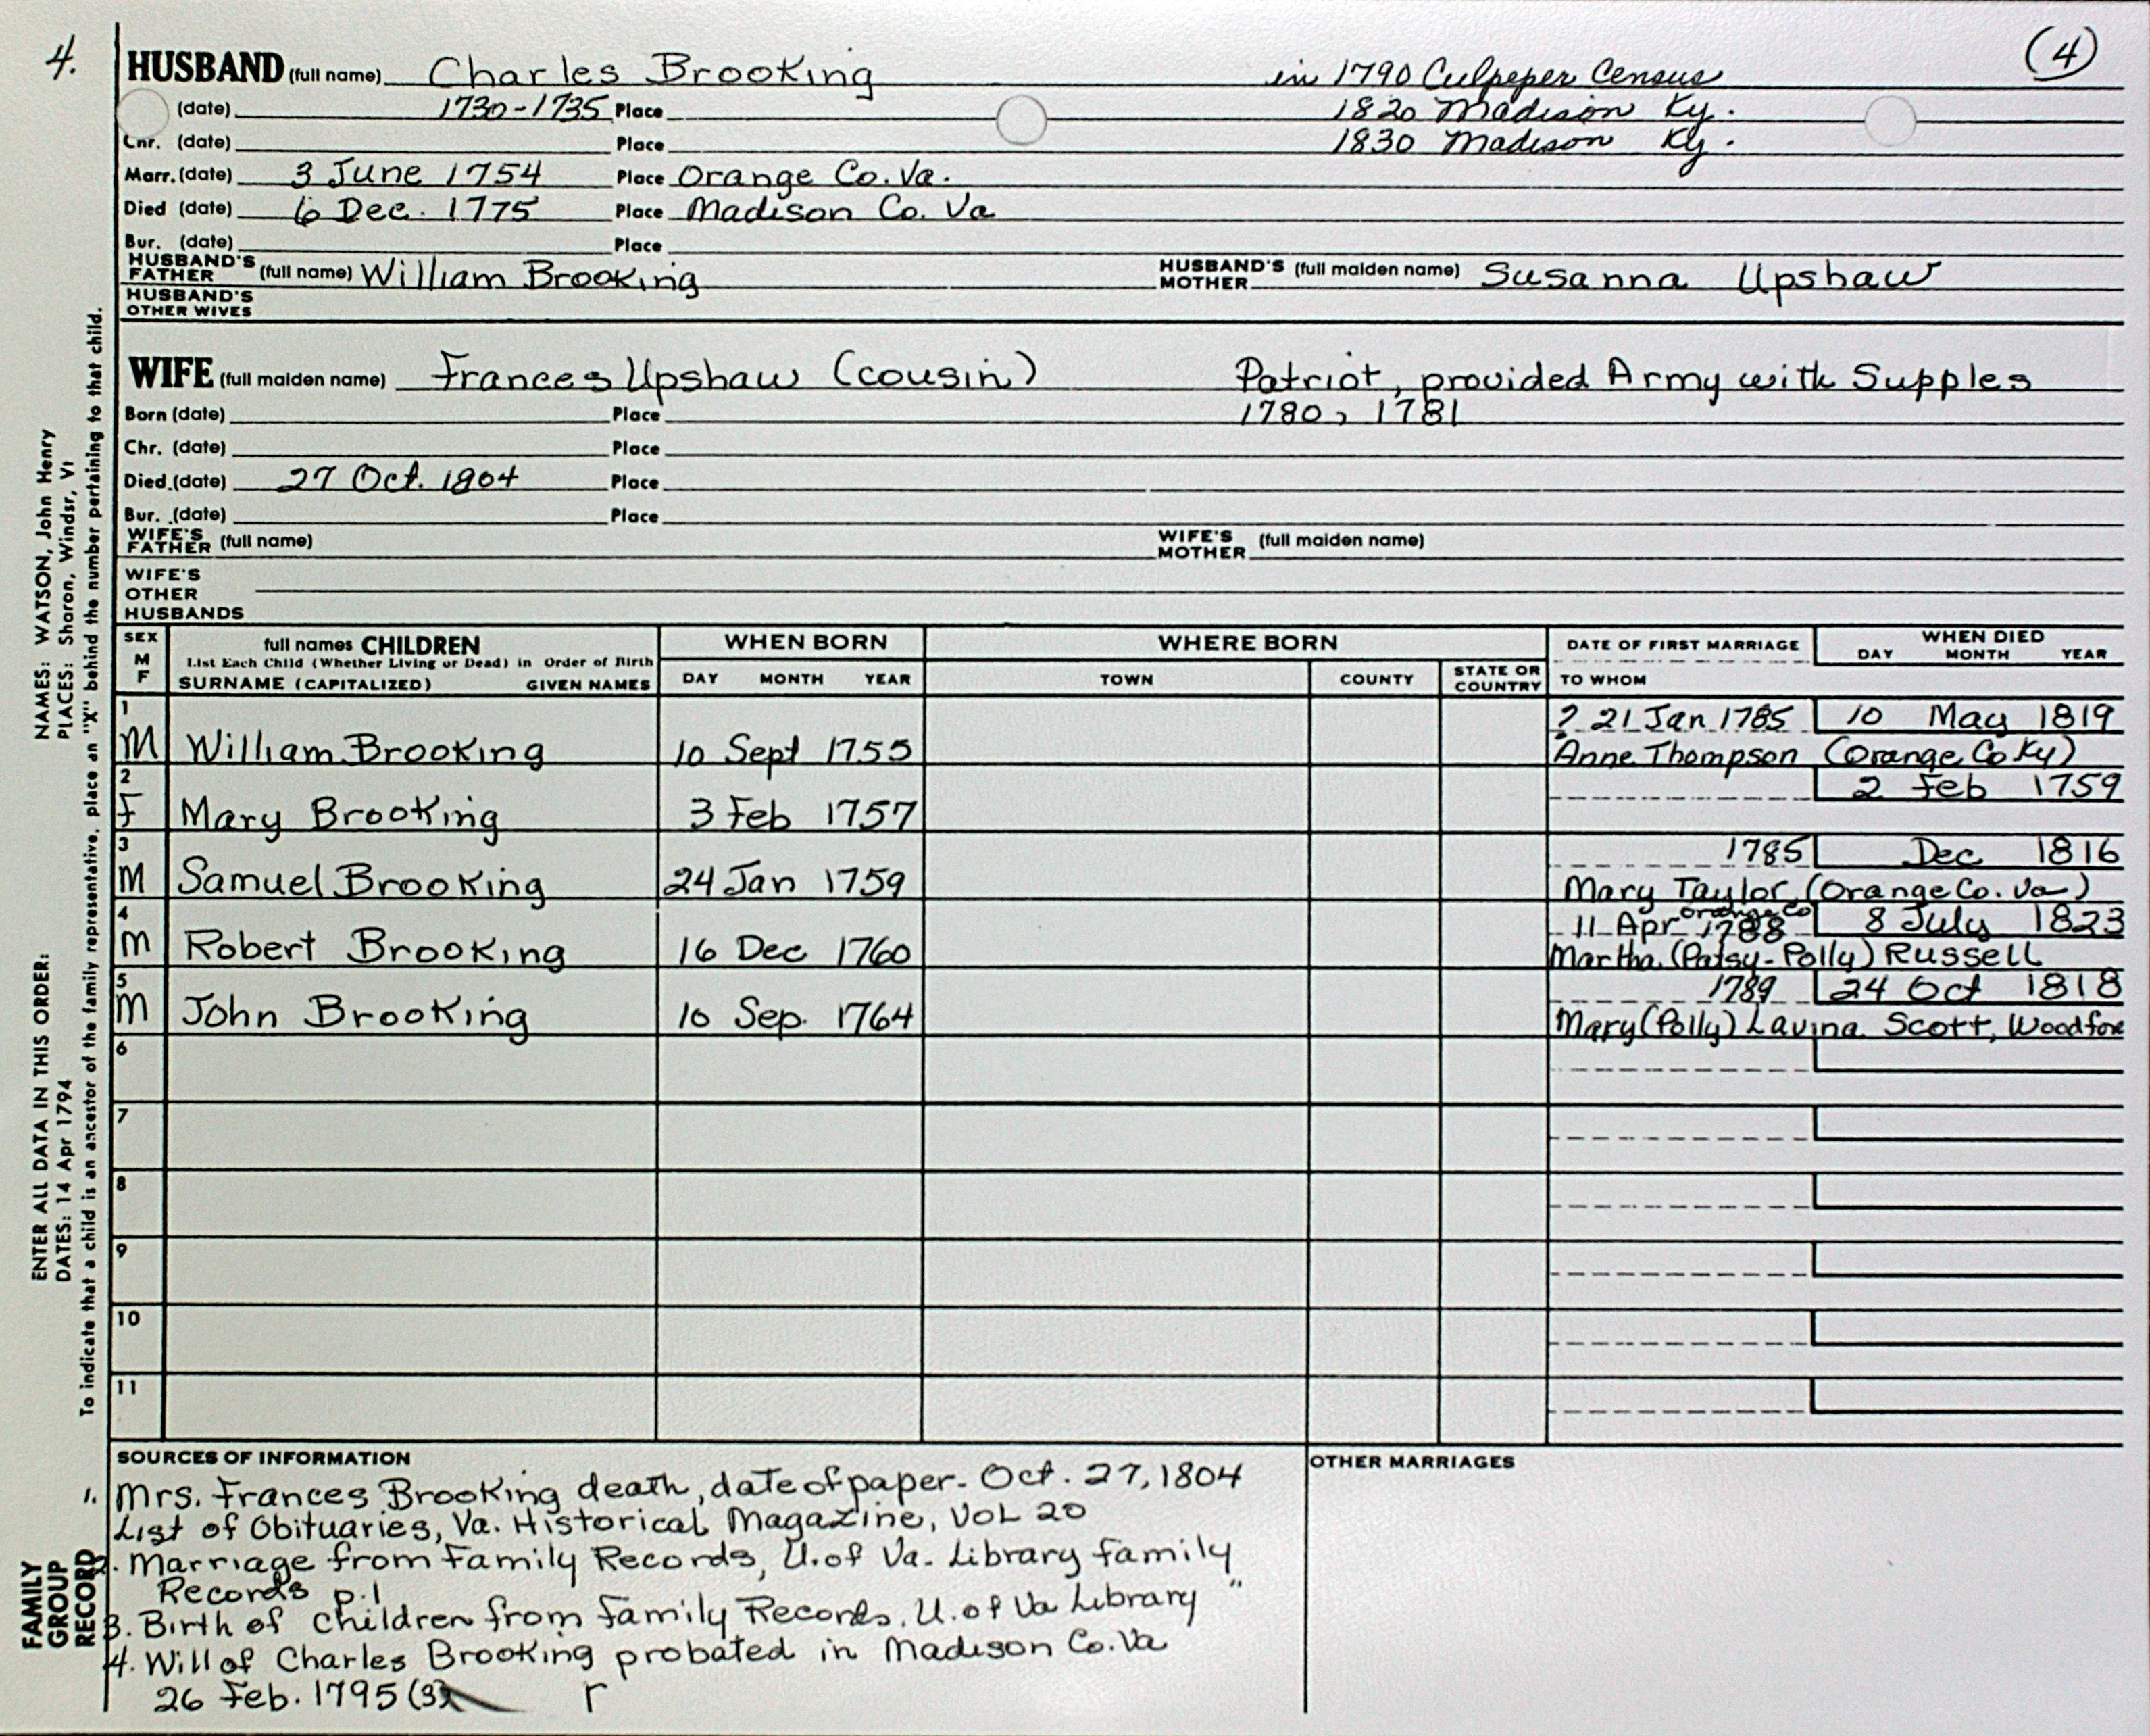 4.
(4)
HUSBAND (full name) Charles Brooking in 1790 Culpeper Census
(date) 1730-1735 Place 1820 Madison Ky.
Chr. (date) Place 1830 Madison Ky.
Marr. (date) 3 June 1754 Place Orange Co. Va.
Died (date) 6 Dec. 1775 Place Madison Co. Va
Bur. (date) Place
HUSBAND'S FATHER (full name) William Brooking HUSBAND'S MOTHER (full maiden name) Susanna Upshaw
HUSBAND'S OTHER WIVES
WIFE (full maiden name) Frances Upshaw (cousin) Patriot, provided Army with Supples
Born (date) Place 1780, 1781
Chr. (date) Place
Died (date) 27 Oct. 1804 Place
Bur. (date) Place
WIFE'S FATHER (full name) WIFE'S MOTHER (full maiden name)
WIFE'S OTHER HUSBANDS
SEX M F
full names CHILDREN
List Each Child (Whether Living or Dead) in Order of Birth
SURNAME (CAPITALIZED) GIVEN NAMES
WHEN BORN
DAY MONTH YEAR
WHERE BORN
TOWN COUNTY STATE OR COUNTRY
DATE OF FIRST MARRIAGE
TO WHOM
WHEN DIED
DAY MONTH YEAR
1 ? 21 Jan 1785 10 May 1819
M William Brooking 10 Sept 1755 Anne Thompson (Orange Co Ky)
2 2 Feb 1759
F Mary Brooking 3 Feb 1757
3 1785 Dec 1816
M Samuel Brooking 24 Jan 1759 Mary Taylor, (Orange Co. Va)
4 11 Apr 1788 Orange Co 8 July 1823
M Robert Brooking 16 Dec 1760 Martha (Patsy-Polly) Russell
5 1789 24 Oct 1818
M John Brooking 10 Sep. 1764 Mary (Polly) Lavina Scott, Woodford
6
7
8
9
10
11
SOURCES OF INFORMATION
1. Mrs. Frances Brooking death, date of paper - Oct. 27, 1804
List of Obituaries, Va. Historical Magazine, Vol 20
2. Marriage from Family Records, U. of Va. Library family
Records p. 1
3. Birth of children from family Records, U. of Va Library "
4. Will of Charles Brooking probated in Madison Co. Va
26 Feb. 1795 (3)
OTHER MARRIAGES
NAMES: WATSON, John Henry
PLACES: Sharon, Windsr, Vt
ENTER ALL DATA IN THIS ORDER:
DATES: 14 Apr 1794
To indicate that a child is an ancestor of the family representative, place an "X" behind the number pertaining to that child.
FAMILY
GROUP
RECORD